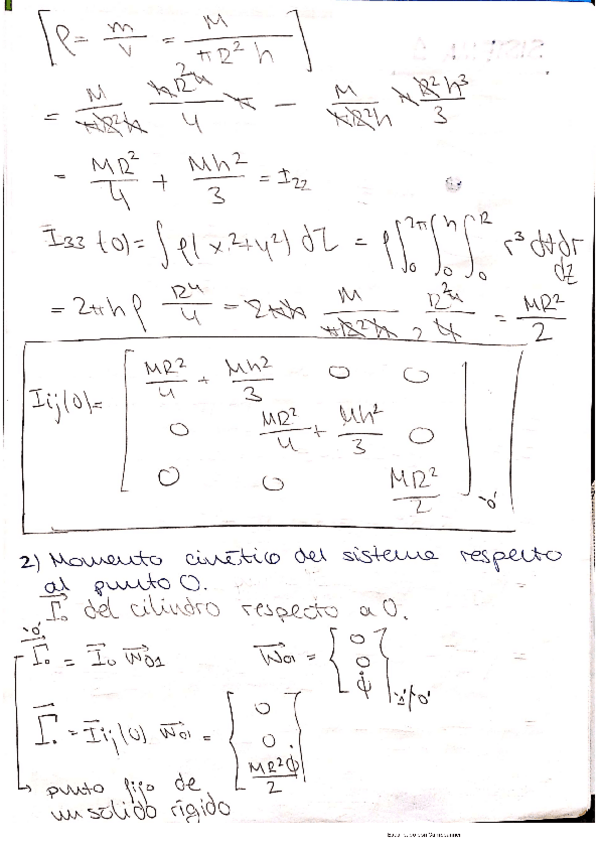 [ρ = m/V = M/(πR²h)]
= M/(πR²h) πR⁴/4 h − M/(πR²h) π R²h³/3
= MR²/4 + Mh²/3 = I₂₂
I₃₃(0) = ∫ρ(x²+y²) dZ = ρ∫₀^2π ∫₀^h ∫₀^R r³ dϑ dr dz
= 2πhρ R⁴/4 = 2πh M/(πR²h) R⁴/4 = MR²/2
Iij(0) = [ MR²/4 + Mh²/3 0 0
0 MR²/4 + Mh²/3 0
0 0 MR²/2 ]"0"
2) Momento cinético del sistema respecto
al punto O.
Γ₀ del cilindro respecto a O.
Γ₀ = I₀ W01 W01 = { 0 0 φ̇ }
Γ₀ = Iij(0) W01 = { 0 0 MR²φ̇/2 }
punto fijo de
un sólido rígido